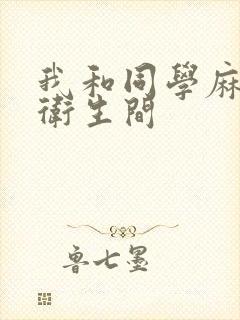 我和同學麻
衛生間
魯七墨